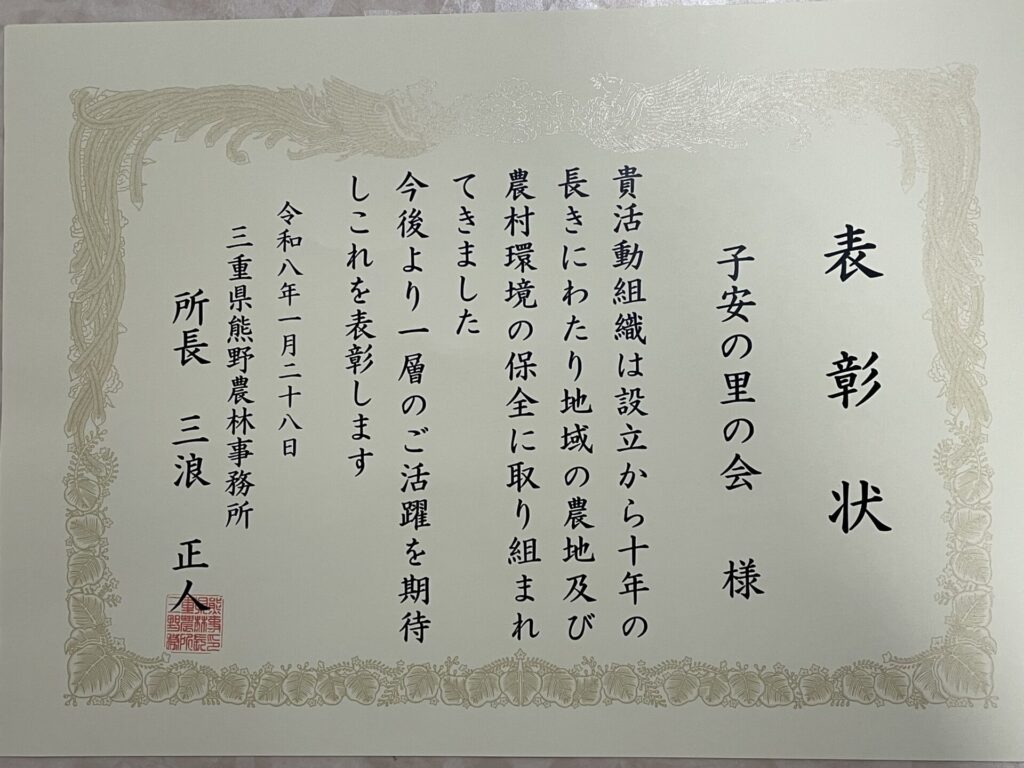 表彰状
子安の里の会 様
貴活動組織は設立から十年の
長きにわたり地域の農地及び
農村環境の保全に取り組まれ
てきました
今後より一層のご活躍を期待
しこれを表彰します
令和八年一月二十八日
三重県熊野農林事務所
所長 三浪 正人